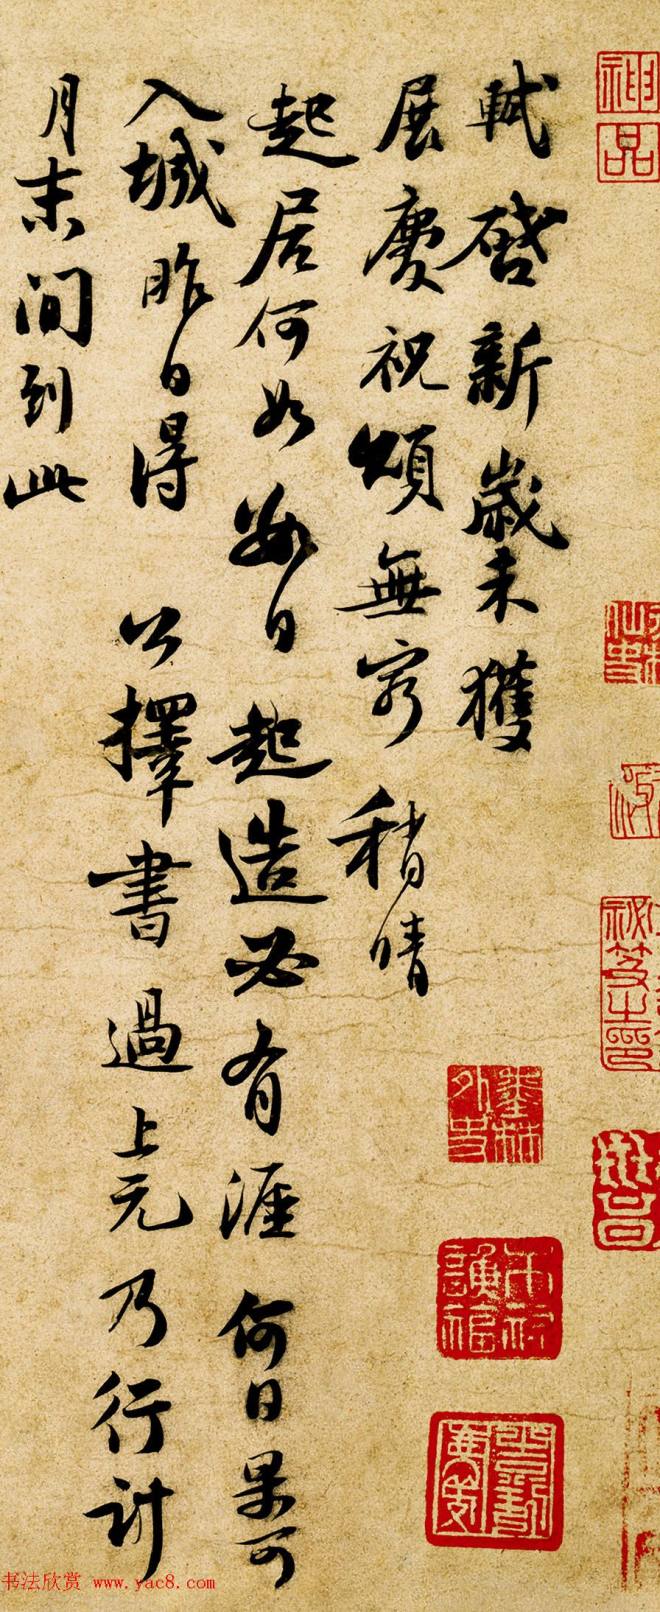 軾啓新歲未獲
展慶祝頌無窮稍晴
起居何如數日起造必有涯何日果可
入城昨日得公擇書過上元乃行計
月末間到此
神品
書法欣赏 www.yac8.com